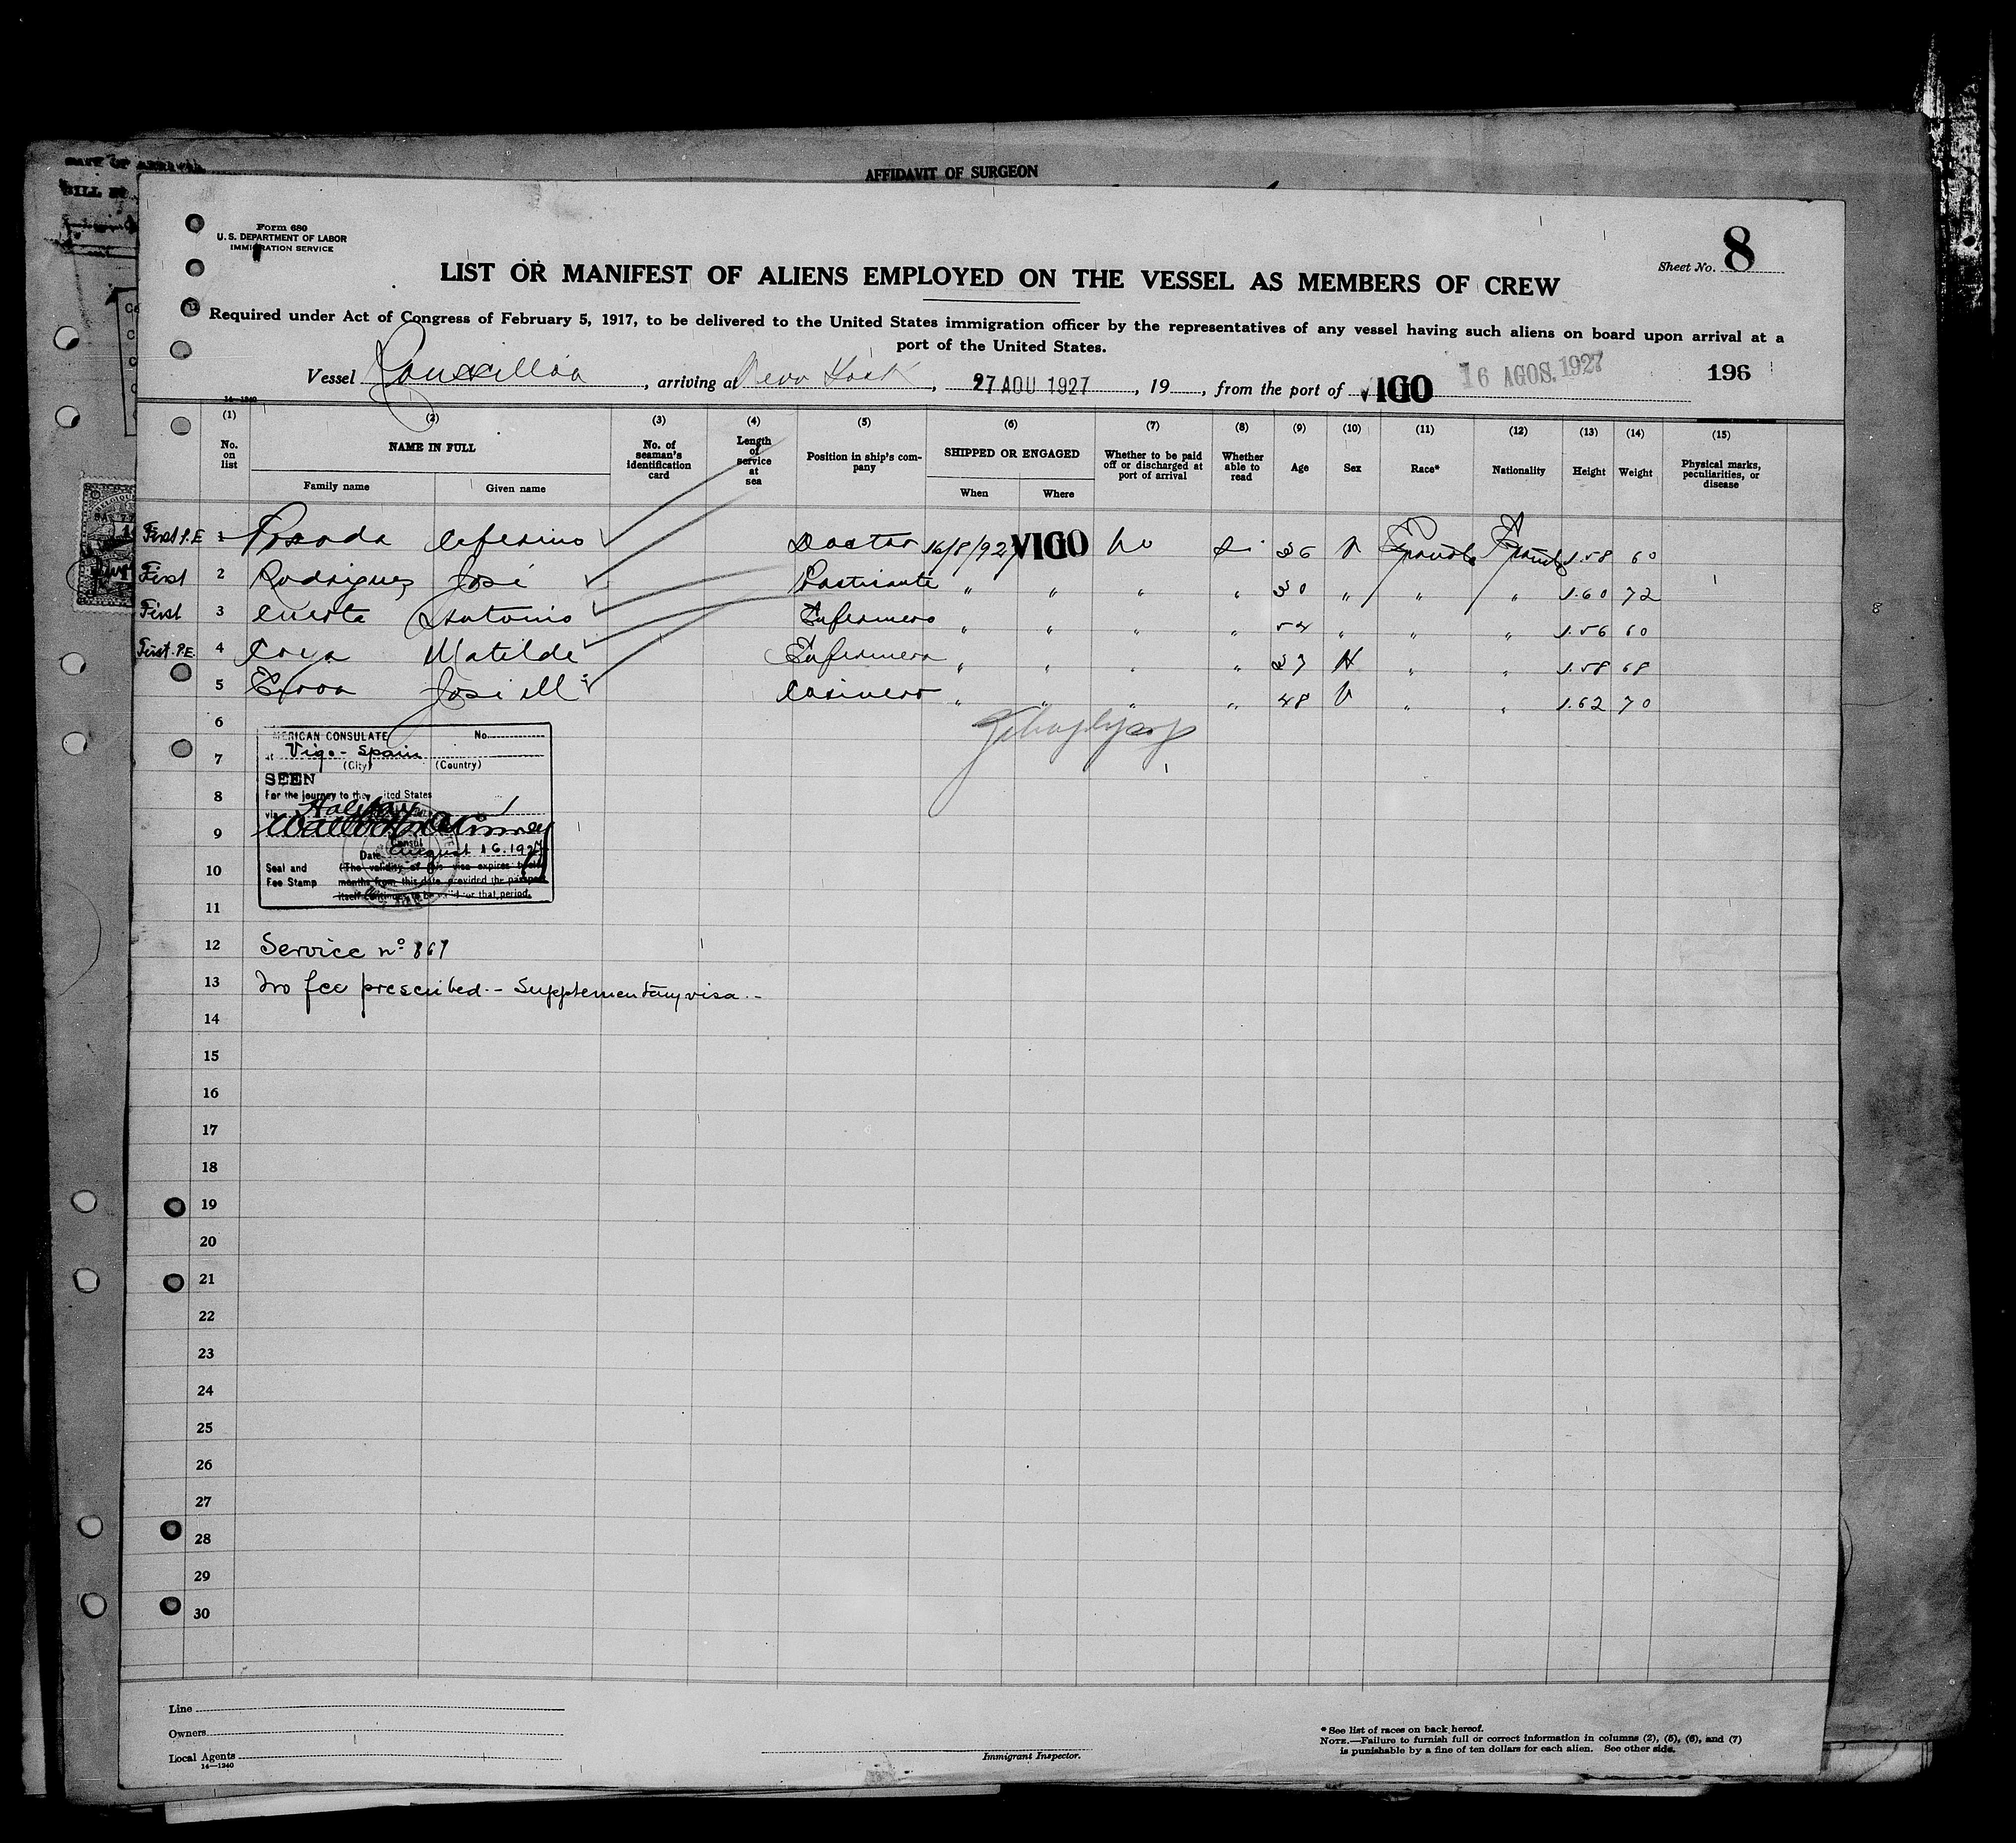 DATE OF ARRIVAL
AFFIDAVIT OF SURGEON
Form 680
U. S. DEPARTMENT OF LABOR
IMMIGRATION SERVICE
Sheet No. 8
LIST OR MANIFEST OF ALIENS EMPLOYED ON THE VESSEL AS MEMBERS OF CREW
Required under Act of Congress of February 5, 1917, to be delivered to the United States immigration officer by the representatives of any vessel having such aliens on board upon arrival at a
port of the United States.
Vessel Roussillon, arriving at New York, 27 AOU 1927, 19, from the port of VIGO 16 AGOS. 1927 196
14—1240
(1) (2) (3) (4) (5) (6) (7) (8) (9) (10) (11) (12) (13) (14) (15)
No. on list NAME IN FULL No. of seaman's identification card Length of service at sea Position in ship's company SHIPPED OR ENGAGED Whether to be paid off or discharged at port of arrival Whether able to read Age Sex Race* Nationality Height Weight Physical marks, peculiarities, or disease
Family name Given name When Where
First P.E 1 Posada Ceferino Doctor 16/8/927 VIGO No Si 36 V Española Española 1.58 60
First 2 Rodriguez José Practicante " " " " 30 " " " 1.60 72
First 3 Cuesta Antonio Enfermero " " " " 54 " " " 1.56 60
First P.E. 4 Matilde Enfermera " " " " 37 H " " 1.58 68
5 José M. Cocinero " " " " 48 V " " 1.62 70
6
AMERICAN CONSULATE No.
at Vigo - Spain
7
(City) (Country)
SEEN
For the journey to the United States
8
via
9
Consul
Date August 16. 1927
10
Seal and Fee Stamp
(The validity of this visa expires twelve
months from this date provided the passport
itself continues to be valid for that period.
11
12 Service nº 867
13 No fee prescribed.- Supplementary visa.-
14
15
16
17
18
19
20
21
22
23
24
25
26
27
28
29
30
Line
Owners
Local Agents
14—1240
Immigrant Inspector.
* See list of races on back hereof.
NOTE.—Failure to furnish full or correct information in columns (2), (5), (6), and (7)
is punishable by a fine of ten dollars for each alien. See other side.